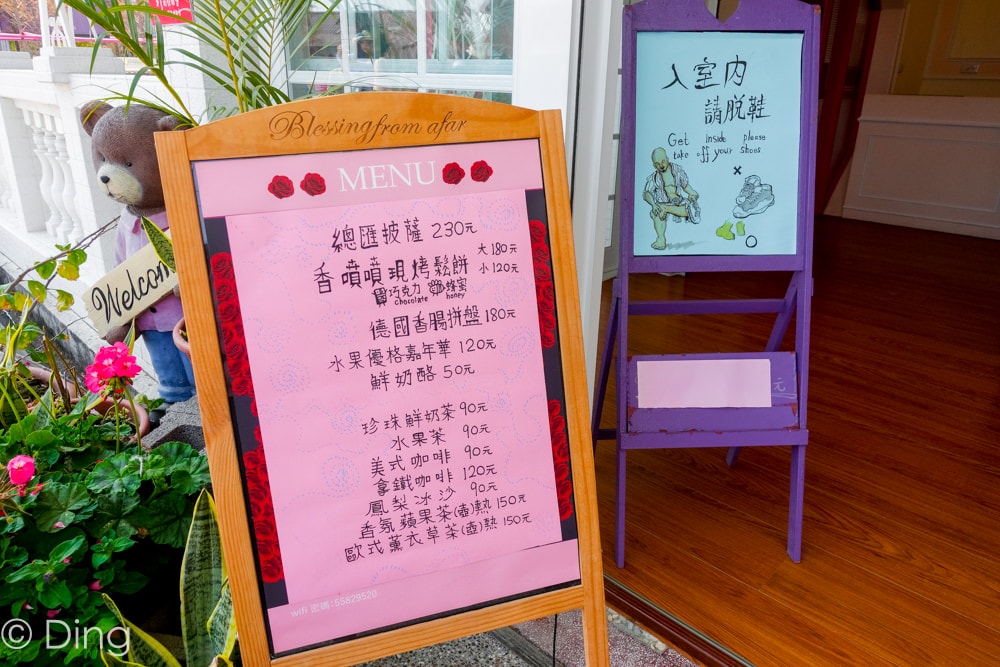 Blessing from afar
MENU
總匯披薩 230元
香噴噴現烤鬆餅 大180元 小120元
巧克力 蜂蜜
chocolate honey
德國香腸拼盤 180元
水果優格嘉年華 120元
鮮奶酪 50元
珍珠鮮奶茶 90元
水果茶 90元
美式咖啡 90元
拿鐵咖啡 120元
鳳梨冰沙 90元
香氛蘋果茶(壺)熱 150元
歐式薰衣草茶(壺)熱 150元
wifi 密碼:55829520
Welcom
入室內
請脫鞋
Get inside please
take off your shoes
元
© Ding